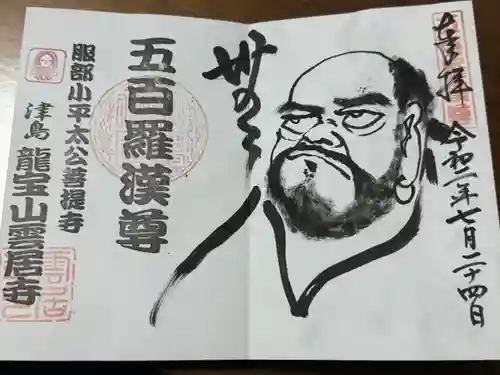 奉拝
令和二年七月二十四日
卅の二
五百羅漢尊
服部小平太公菩提寺
津島 龍宝山雲居寺